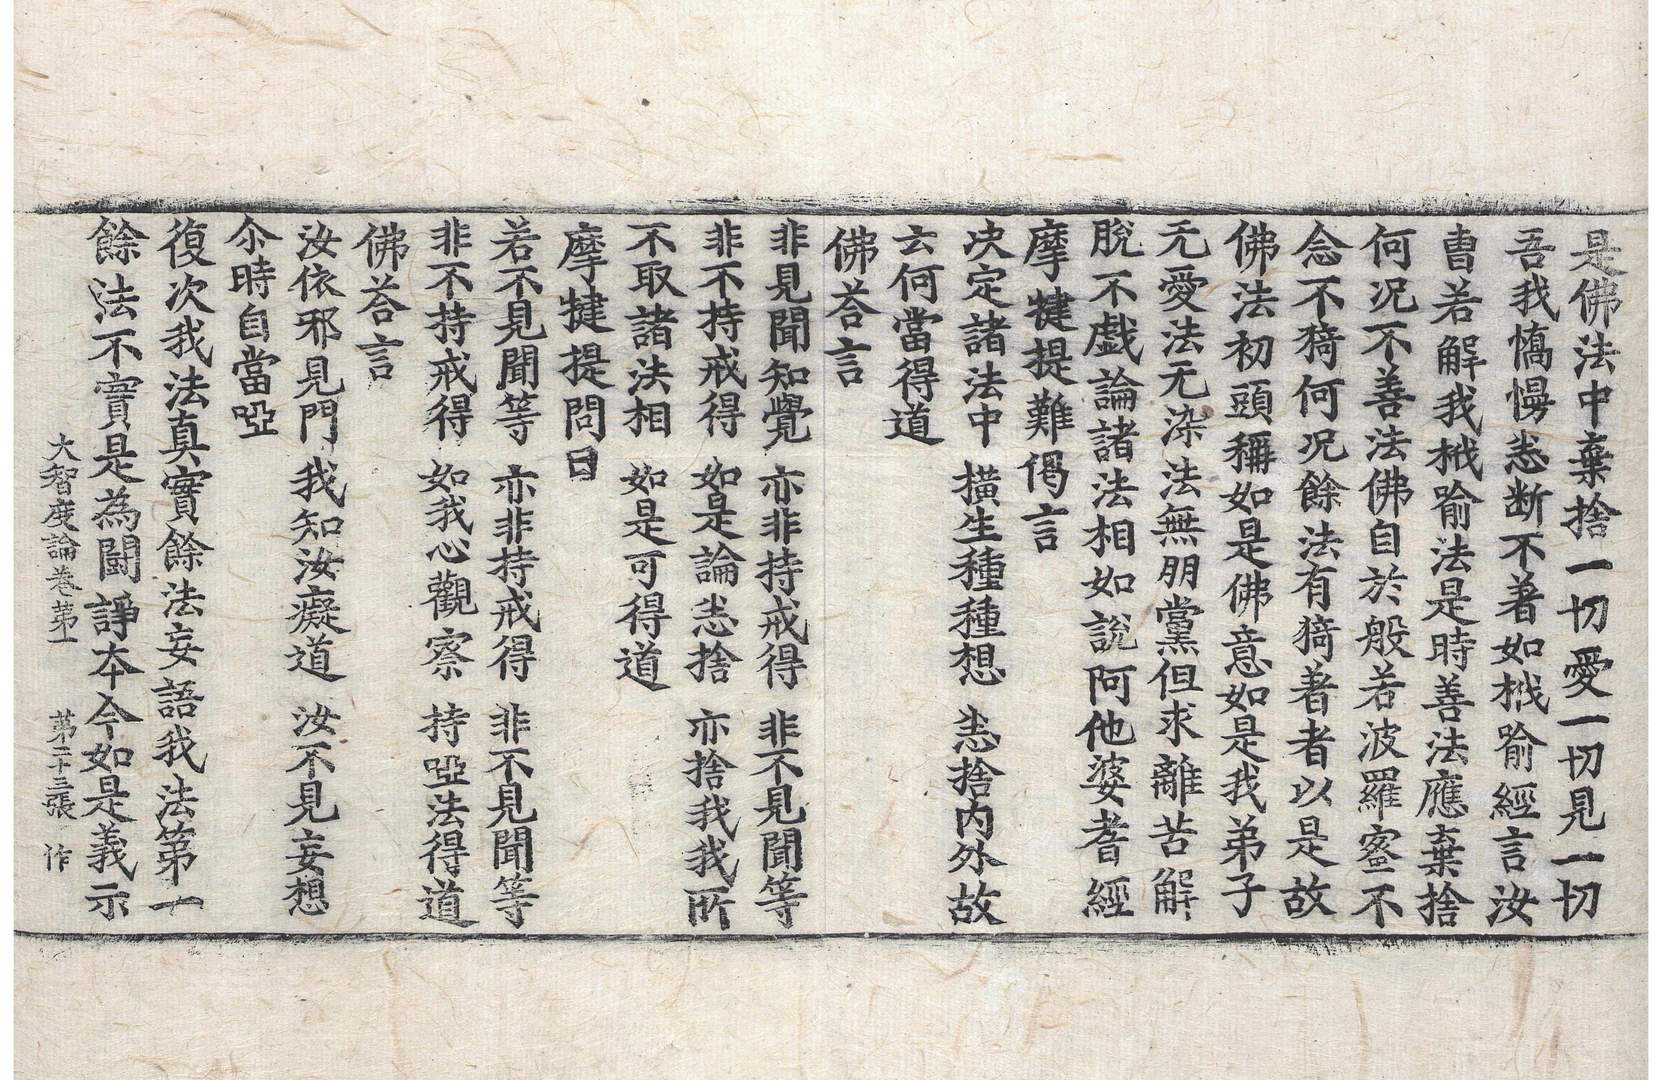 是佛法中棄捨一切愛一切見一切
吾我憍慢悉断不著如栰喻經言汝
曺若解我栰喻法是時善法應棄捨
何况不善法佛自於般若波羅蜜不
念不猗何况餘法有猗著者以是故
佛法初頭稱如是佛意如是我弟子
无愛法无染法無朋黨但求離苦解
脫不戱論諸法相如說阿他婆耆經
摩犍提難偈言
决定諸法中 橫生種種想 悉捨内外故
云何當得道
佛荅言
非見聞知覺 亦非持戒得 非不見聞等
非不持戒得 如是論悉捨 亦捨我我所
不取諸法相 如是可得道
摩犍提問曰
若不見聞等 亦非持戒得 非不見聞等
非不持戒得 如我心觀察 持啞法得道
佛荅言
汝依邪見門 我知汝癡道 汝不見妄想
尒時自當啞
復次我法真實餘法妄語我法第一
餘法不實是為鬪諍本今如是義示
大智度論卷第一 第二十三張 作